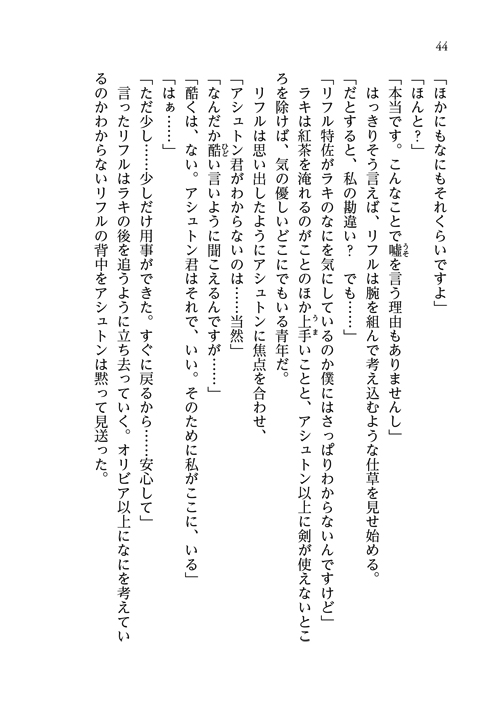 44
「ほかにもなにもそれくらいですよ」
「ほんと？」
「本当です。こんなことで嘘を言う理由もありませんし」
はっきりそう言えば、リフルは腕を組んで考え込むような仕草を見せ始める。
「だとすると、私の勘違い？　でも……」
「リフル特佐がラキのなにを気にしているのか僕にはさっぱりわからないんですけど」
ラキは紅茶を淹れるのがことのほか上手いことと、アシュトン以上に剣が使えないとこ
ろを除けば、気の優しいどこにでもいる青年だ。
リフルは思い出したようにアシュトンに焦点を合わせ、
「アシュトン君がわからないのは……当然」
「なんだか酷い言いように聞こえるんですが……」
「酷くは、ない。アシュトン君はそれで、いい。そのために私がここに、いる」
「はぁ……」
「ただ少し……少しだけ用事ができた。すぐに戻るから……安心して」
言ったリフルはラキの後を追うように立ち去っていく。オリビア以上になにを考えてい
るのかわからないリフルの背中をアシュトンは黙って見送った。